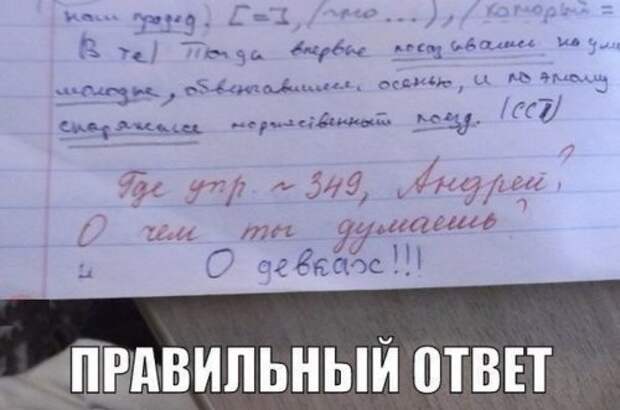 наш прадед. [=], (что ...), (который =
(В те) Тогда впервые показывались на ули
молодые, обвенчавшиеся осенью, и по этому
снаряжался торжественный поезд. (ССП)
Где упр. ~ 349, Андрей?
О чем ты думаешь?
О девках!!!
ПРАВИЛЬНЫЙ ОТВЕТ